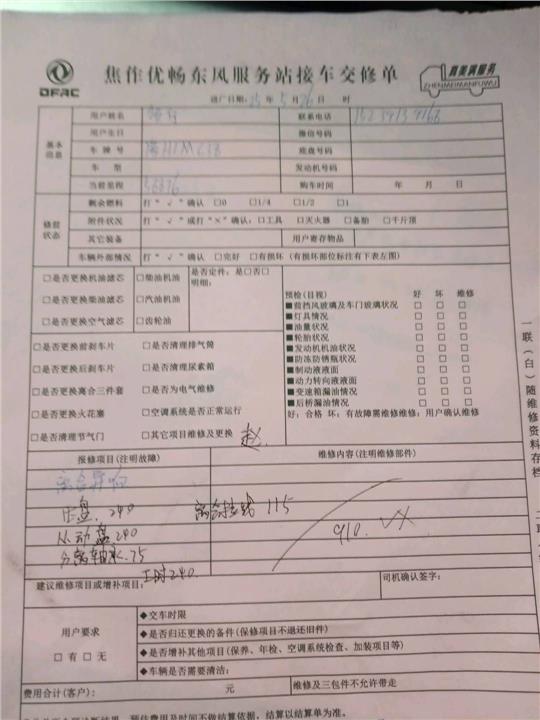 DFAC
焦作优畅东风服务站接车交修单
真美满服务
ZHENMEIMANFUWU
进厂日期: 25 年 5 月 26 日 时
基本信息
用户姓名 联系电话
用户生日 微信号码
车牌号 底盘号码
车型 发动机号码
当前里程 购车时间 年 月 日
修前状态
剩余燃料 打“√”确认 □0 □1/4 □1/2 □1
附件状况 打“√”或打“×”确认: □工具 □灭火器 □备胎 □千斤顶
其它装备 用户寄存物品
车辆外部情况 打“√”确认 □完好 □有损坏 (有损坏部位标注有下表左图)
□是否更换机油滤芯 □柴油机油 是否定件: 是□否□
明细:
□是否更换柴油滤芯 □汽油机油
□是否更换空气滤芯 □齿轮油
□是否更换前刹车片 □是否清理排气筒
□是否更换后刹车片 □是否清理尿素箱
□是否更换离合三件套 □是否为电气维修
□是否更换火花塞 □空调系统是否正常运行
□是否清理节气门 □其它项目维修及更换 赵
预检(目视) 好 坏 维修
■前挡风玻璃及车门玻璃状况 □ □ □
■灯具情况 □ □ □
■油量状况 □ □ □
■轮胎状况 □ □ □
■发动机机油状况 □ □ □
■防冻防锈瓶状况 □ □ □
■制动液液面 □ □ □
■动力转向液液面 □ □ □
■变速箱漏油情况 □ □ □
■后桥漏油情况 □ □ □
好: 合格 坏: 有故障需维修维修: 用户确认维修
一联(白)随维修资料存档
报修项目(注明故障) 维修内容(注明维修部件)
离合异响
压盘. 240 离合拉线 115
从动盘 240 910.
分离轴承. 75
工时240.
建议维修项目或增补项目: 司机确认签字:
用户要求
□有 □无
◆交车时限
◆是否归还更换的备件(保修项目不退还旧件)
◆是否增补其他项目(保养、年检、空调系统检查、加装项目等)
◆车辆是否需要清洁:
费用合计(客户): 元 维修及三包件不允许带走
预估费用及时间不做结算依据, 结算以结算单为准。